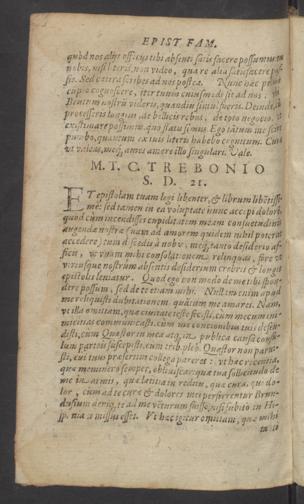 EPIST FAM.
quòd nos alijs officijs tibi absenti satisfacere possumus
nobis, nisi literis, non video, quare alia satisfacere
sic. Sed cætera scribes ad nos postea. Nunc hæc
cupio cognoscere, iter tuum cuiusmodi sit ad nos:
Brutum nostrū videris, quandiu simul fueris. Deinde,
processeris longius, de bellicis rebus, de toto negocio,
existimare possimus, quo statu simus. Ego tātum me scire
putabo, quantum ex tuis literis habebo cognitum. Cura
vt valeas, meq́; ames amore illo singulari. Vale.
M. T. C. TREBONIO
S. D. 21.
ET epistolam tuam legi libenter, & librum libētissi-
mè: sed tamen in ea voluptate hunc accepi dolorē,
quòd cùm incendisses cupiditatem meam consuetudinis
augendæ nostræ (nam ad amorem quidem nihil poterat
accedere) tum discedis à nobis, meq́; tanto desiderio af-
ficis, vt vnam mihi consolationem relinquas, fore vt
vtriusque nostrum absentis desiderium crebris & longis
epistolis leniatur. Quod ego non modo de me tibi spon-
dere possum, sed de te etiam mihi. Nullam enim apud
me reliquisti dubitationem, quātum me amares. Nam,
vt illa omittam, quæ ciuitate teste fecisti, cùm mecum ini-
micitias communicasti, cùm me concionibus tuis defen-
disti, cùm Quæstor in mea atq́; in publica causa consu-
lum partes suscepisti, cùm trib. pleb. Quæstor non parui-
sti, cui tuus præsertim collega pareret: vt hæc recentia,
quæ meminero semper, obliuiscar: quæ tua sollicitudo de
me in armis, quæ lætitia in reditu, quæ cura, qui do-
lor, cùm ad te curæ & dolores mei perferrentur: Brun-
dusium denique te ad me venturum fuisse, nisi subito in Hi-
spaniā missus esses. Vt hæc igitur omittam, quæ mihi